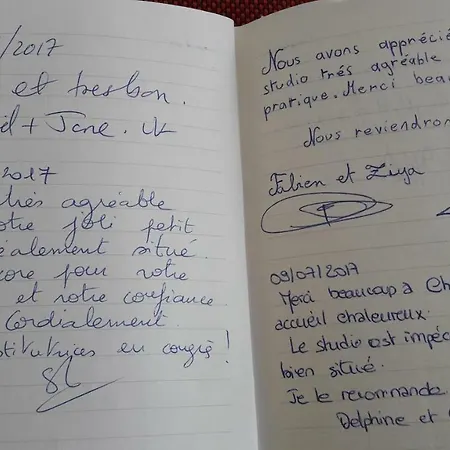 /2017
et tres bon.
+ Jane. UK
2017
très agréable
otre joli petit
éalement situé.
core pour votre
et votre confiance.
Cordialement.
stitutrices en congé !
Nous avons apprécié
studio très agréable
pratique. Merci beau
Nous reviendron
Fabien et Ziya
09/07/2017
Merci beaucoup à Ch
accueil chaleureux.
Le studio est impéc
bien situé.
Je le recommande.
Delphine et